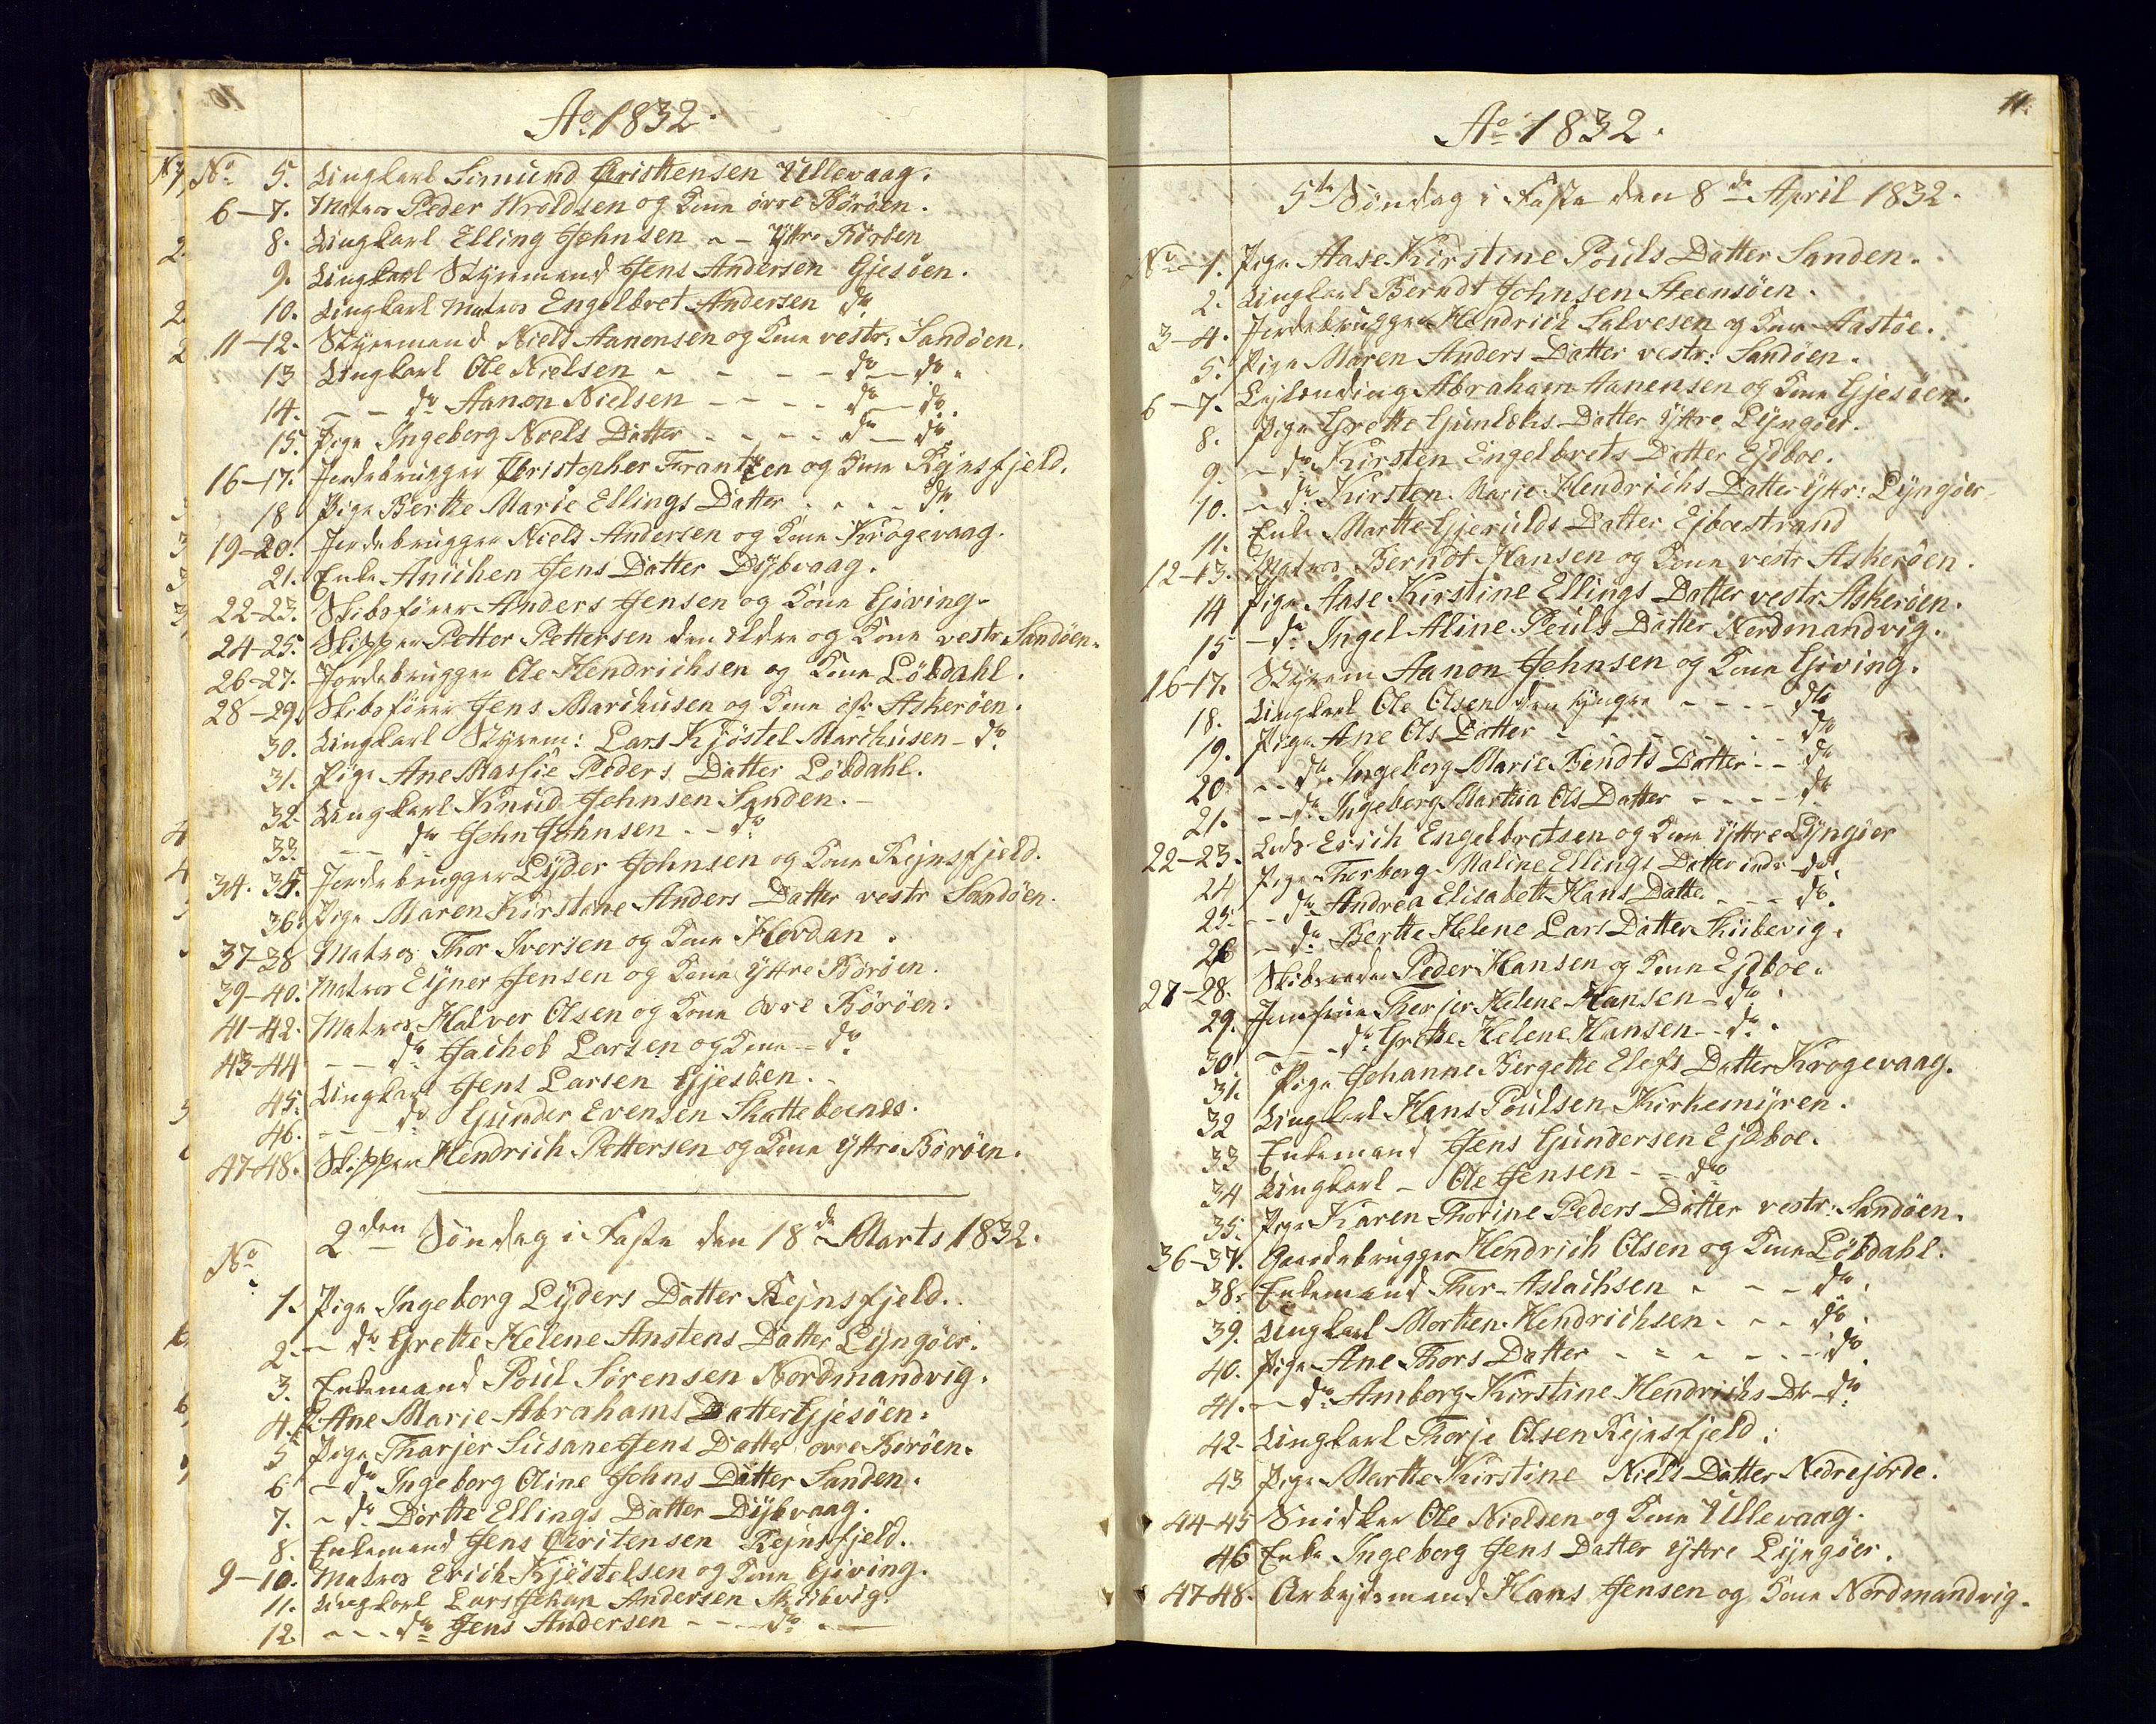 Ao 1832.
No 5. Ungkarl Simund Christensen Ullevaag.
6-7. Matros Peder Wroldsen og Kone övre Böröen.
8. Ungkarl Elling Johnsen - - Yttre Böröen
9. Ungkarl Styremand Jens Andersen Gjesöen.
10. Ungkarl Matros Engelbret Andersen do
11-12. Styremand Niels Aanonsen og Kone vestr: Sandöen.
13 Ungkarl Ole Nielsen - - - - do - do.
14. - - do Aanon Nielsen - - - - do - do.
15. Pige Ingeborg Niels Datter - - - - do - do.
16-17. Jordebrugger Christopher Frantzen og Kone Rejnsfjeld.
18 Pige Berthe Marie Ellings Datter - - - - do.
19-20. Jordebrugger Niels Andersen og Kone Krogevaag.
21. Enke Anichen Jens Datter Dybvaag.
22-23. Skibsförer Anders Jensen og Kone Giving.
24-25. Skipper Petter Pettersen den eldre og Kone vestr Sandöen.
26-27. Jordebrugger Ole Hendrichsen og Kone Löbdahl.
28-29. Skibsförer Jens Marchusen og Kone öst: Askeröen.
30. Ungkarl Styrem: Lars Kjöstel Marchusen - do
31. Pige Ane Massie Peders Datter Löbdahl.
32. Ungkarl Knud Johnsen Sanden. -
33. - - do John Johnsen - - do
34. 35. Jordebrugger Lyder Johnsen og Kone Rejnsfjeld.
36. Pige Maren Kirstine Anders Datter vestr Sandöen.
37-38 Matros Thor Iversen og Kone Hovdan.
39-40. Matros Ejner Jensen og Kone Yttre Böröen.
41-42. Matros Halvor Olsen og Kone övre Böröen.
43-44 - - do Jachob Larsen og Kone - do
45. Ungkarl Jens Larsen Gjesöen. -
46. - - - do Gunder Evensen Skatteboends.
47-48. Skipper Hendrich Pettersen og Kone Yttre Böröen.
2den Söndag i Faste den 18de Marts 1832.
No
1. Pige Ingeborg Lyders Datter Rejnsfjeld.
2. - do Grethe Helene Anstens Datter Lyngöer.
3. Enkemand Poul Sörensen Nordmandvig.
4. P. Ane Marie Abrahams Datter Gjesöen.
5 Pige Tharjer Susane Jens Datter övre Böröen.
6 - do Ingeborg Oline Johns Datter Sanden.
7. - do Dorthe Ellings Datter Dybvaag.
8. Enkemand Jens Christensen Rejnsfjeld.
9-10. Matros Erich Kjöstelsen og Kone Giving.
11. Ungkarl Lars Johan Andersen Skiibvig.
12. - - - do Jens Andersen - - - do - -
11.
Ao 1832.
5te Söndag i Faste den 8de April 1832.
No 1. Pige Aase Kirstine Pouls Datter Sanden.
2. Ungkarl Berndt Johnsen Steensöen.
3-4. Jordebrugger Hendrich Salvesen og Kone Aastöe.
5. Pige Maren Anders Datter vestr: Sandöen.
6-7. Lejlending Abraham Aanensen og Kone Gjesöen.
8. Pige Grethe Gunleks Datter Yttre Lyngöer.
9. - do Kirsten Engelbrets Datter Ejdboe.
10. - do Kirsten Marie Hendrichs Datter Yttr: Lyngöer
11. Enke Marthe Gjerulds Datter Ejboestrand
12-13. Matros Berndt Hansen og Kone vestr Askeröen.
14 Pige Aase Kirstine Ellings Datter vestr Askeröen.
15 - do Ingel Aline Pouls Datter Nordmandvig.
16-17. Styrem Aanon Johnsen og Kone Giving.
18. Ungkarl Ole Olsen den yngre - - - - do
19. Pige Ane Ols Datter - - - - - - do
20. - - do Ingeborg Marie Bendts Datter - - do
21. - - do Ingeborg Marthia Ols Datter - - - - do
22-23. Lods Erich Engelbretsen og Kone Yttre Lyngöer
24 Pige Thorborg Maline Ellings Datter indr - do.
25. - - do Andrea Elisabeth Hans Datter - - - do.
26 - - do Berthe Helene Lars Datter Skiibevig.
27-28. Peder Hansen og Kone Ejdboe.
29. Jomfrue Therjer Helene Hansen - do.
30 - - - do Grethe Helene Hansen - - do.
31. Pige Johanne Bergethe Elefs Datter Krogevaag.
32 Ungkarl Hans Poulsen Kirkemyren.
33 Enkemand Jens Gundersen Ejdboe.
34 Ungkarl - Ole Jensen - - do
35. Pige Karen Thorine Peders Datter vestr: Sandöen.
36-37. Gaardebrugger Hendrich Olsen og Kone Löbdahl.
38. Enkemand Thor Aslachsen - - - do.
39. Ungkarl Morthen Hendrichsen - - - do.
40. Pige Ane Thors Datter - - - - - do
41. - do Amborg Kirstine Hendrichs Dr - do
42. Ungkarl Thorje Olsen Rejnsfjeld.
43 Pige Marthe Kirstine Niels Datter Nedrejorde.
44-45 Snidker Ole Nielsen og Kone Ullevaag.
46 Enke Ingeborg Jens Datter Yttre Lyngöer.
47-48. Arbejdsmand Hans Jensen og Kone Nordmandvig.